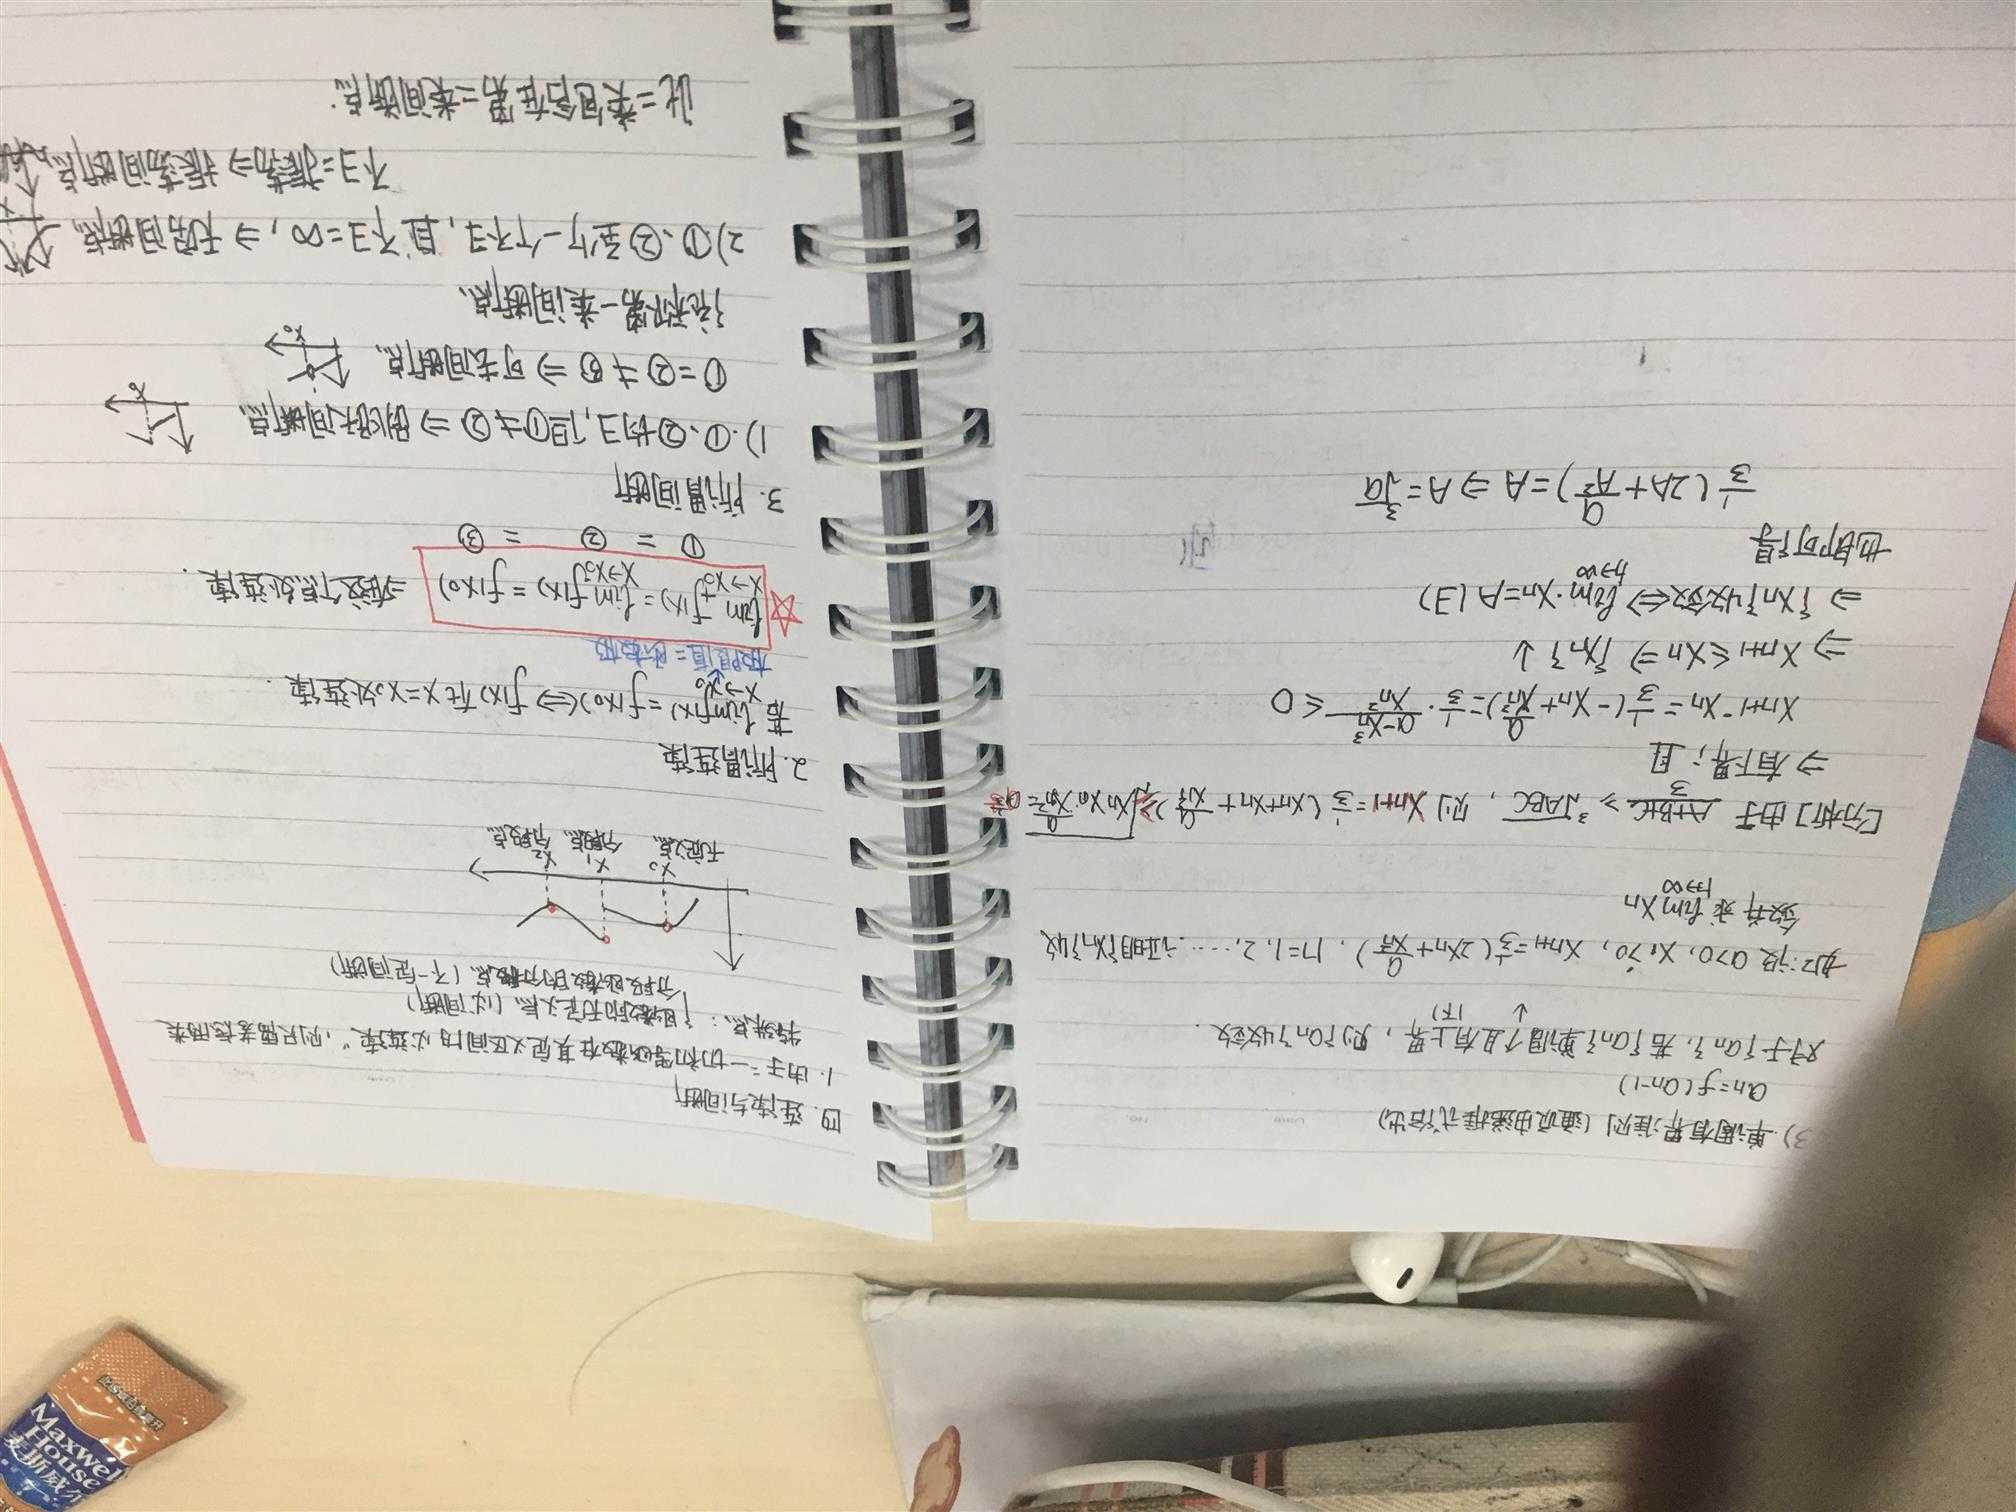 3). 单调有界准则 (通项由递推式给出)
an=f(an-1)
对于{an}, 若{an}单调↑且有上界, 则{an}收敛.
↓ (下)
如: 设 a>0, x1>0, xn+1=1/3(2xn+a/xn²), n=1, 2, ……, 证明{xn}收
敛并求 lim n→∞ xn
[分析] 由于 A+B+C/3 ≥ ³√ABC, 则 xn+1=1/3(xn+xn+a/xn²)≥³√xn·xn·a/xn²=
⇒有下界; 且
xn+1-xn=1/3(-xn+a/xn²)=1/3·a-xn³/xn² ≤0
⇒ xn+1≤xn ⇒ {xn}↓
⇒ {xn}收敛⇔lim n→∞ xn=A(∃)
也即可得
1/3(2A+a/A²)=A⇒A=³√a
四. 连续与间断
1. 由于"一切初等函数在其定义区间内必连续", 则只需考虑两类
特殊点: { 函数的无定义点、(必间断)
分段函数的分段点、(不一定间断)
x0 x1 x2
无定义点、 分段点、 分段点、
2. 所谓连续
若 lim x→x0 f(x)=f(x0)⇔f(x)在x=x0处连续.
极限值=函数值
☆ lim x→x0⁺ f(x)=lim x→x0⁻ f(x)=f(x0) ⇒在这个点处连续.
① = ② = ③
3. 所谓间断
1). ①、②均∃, 但①≠② ⇒ 跳跃间断点、
x0
①=②≠③ ⇒ 可去间断点、
x0
统称第一类间断点、
2) ①、②至少一个不∃, 且不∃=∞, ⇒ 无穷间断点、
不∃=振荡⇒振荡间断点、
此二类包含在第二类间断点.
Maxwell
House
麦斯威尔